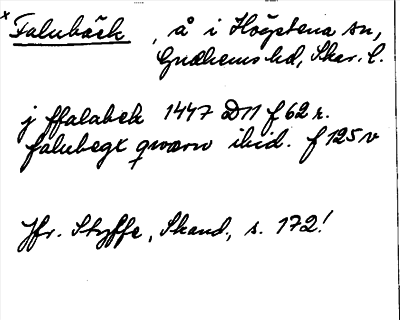 x Falubäck, å i Högstena sn,
Gudhems hd, Skar. l.
j ffalabek 1447 DN f 62 r.
falubegx qwærn ibid. f 125 v
Jfr. Styffe, Skand., s. 172!